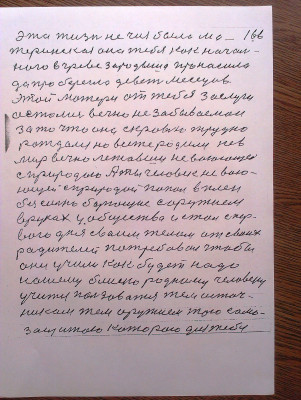 Эта жизнь не чия была ма- 166
теринская она тебя как начал-
ного в чреве зародыша приносила
да про берегла девет месецов
этой матери от тебя заслуги
естолия вечно не забываеман
за то что она с кровию трудно
рождали но ветеродили нев
мир вечно летавший не воюющей
с природою А ты человек не вою-
ющей с природой попал в плен
безсилно борющие с оружием
в руках у общества и стал с пер-
вого дня своим телом от своих
радителей потребовал чтобы
они учили как будет надо
нашему близко родному человеку
учится ползоватся тем источ-
ником тем оружием тою само-
защитою которою для тебя